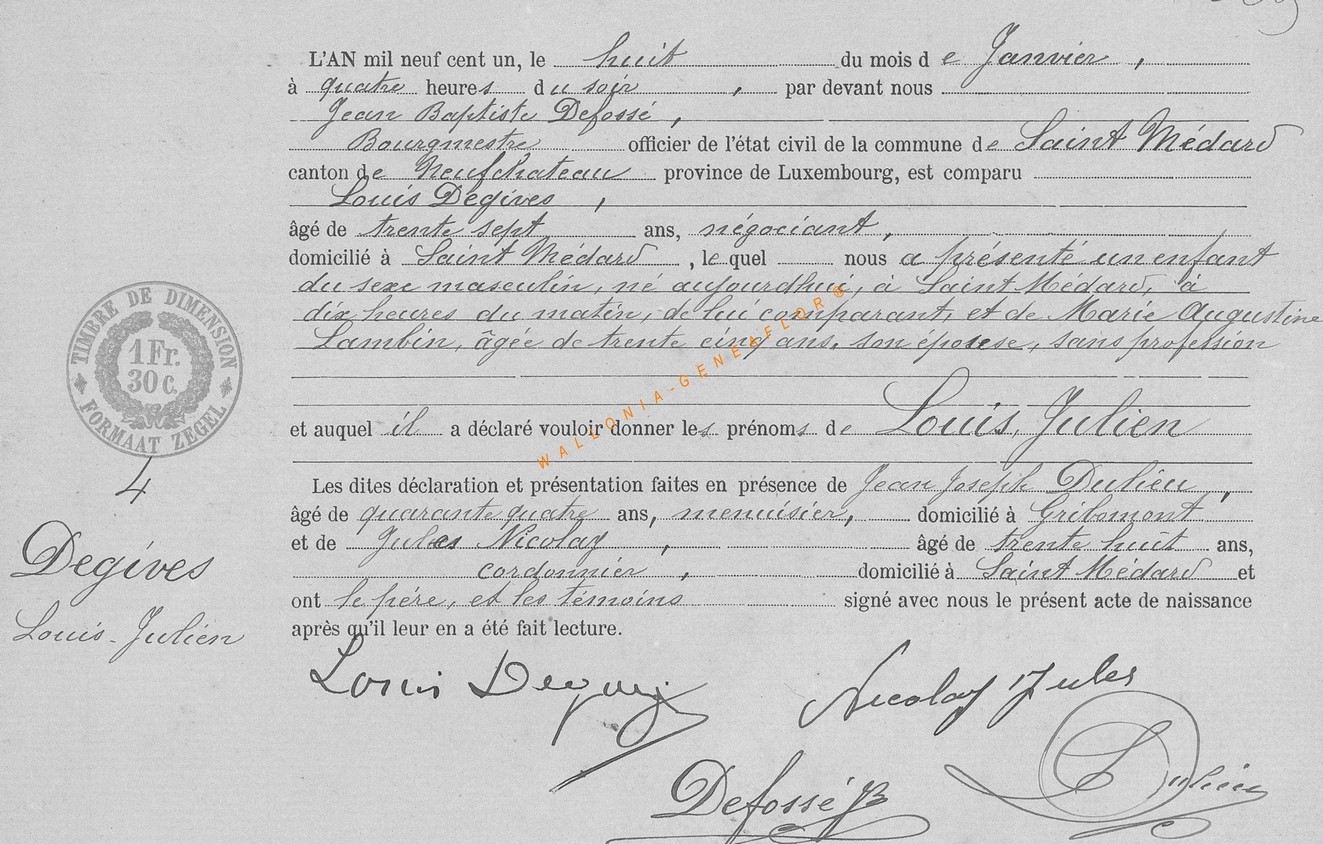 L'AN mil neuf cent un, le huit du mois de Janvier,
à quatre heures du soir, par devant nous
Jean Baptiste Defossé,
Bourgmestre officier de l'état civil de la commune de Saint Médard
canton de Neufchateau province de Luxembourg, est comparu
Louis Degives,
âgé de trente sept ans, négociant,
domicilié à Saint Médard, le quel nous a présenté un enfant
du sexe masculin, né aujourdhui, à Saint Médard, à
dix heures du matin, de lui comparant, et de Marie Augustine
Lambin, âgée de trente cinq ans, son épouse, sans profession
et auquel il a déclaré vouloir donner les prénoms de Louis, Julien
Les dites déclaration et présentation faites en présence de Jean Joseph Dulieu,
âgé de quarante quatre ans, menuisier, domicilié à Gribomont
et de Jules Nicolay, âgé de trente huit ans,
cordonnier, domicilié à Saint Médard et
ont le père, et les témoins signé avec nous le présent acte de naissance
après qu'il leur en a été fait lecture.
TIMBRE DE DIMENSION
1 Fr.
30 C.
FORMAAT ZEGEL
4
Degives
Louis-Julien
WALLONIA-GENEAFLOR®
Louis Degives
Nicolay Jules
Defossé JB
Dulieu